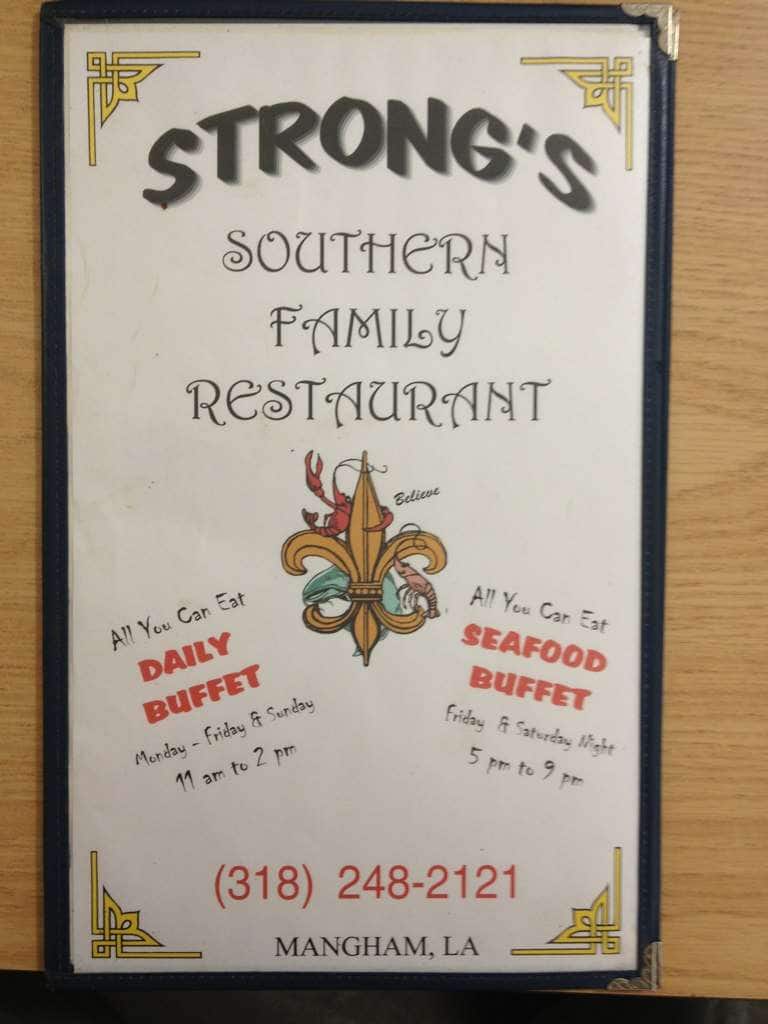 STRONG'S
SOUTHERN
FAMILY
RESTAURANT
Believe
All You Can Eat
DAILY
BUFFET
Monday - Friday & Sunday
11 am to 2 pm
All You Can Eat
SEAFOOD
BUFFET
Friday & Saturday Night
5 pm to 9 pm
(318) 248-2121
MANGHAM, LA